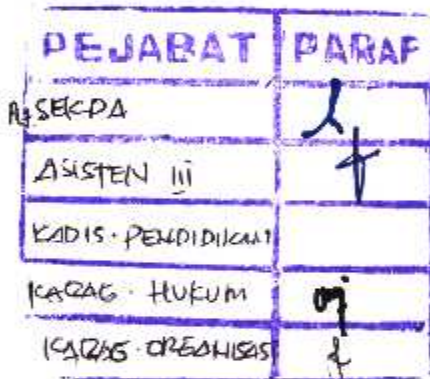 PEJABAT PARAF
Pj. SEKDA
ASISTEN III
KADIS. PENDIDIKAN
KABAG. HUKUM
KABAG. ORGANISASI